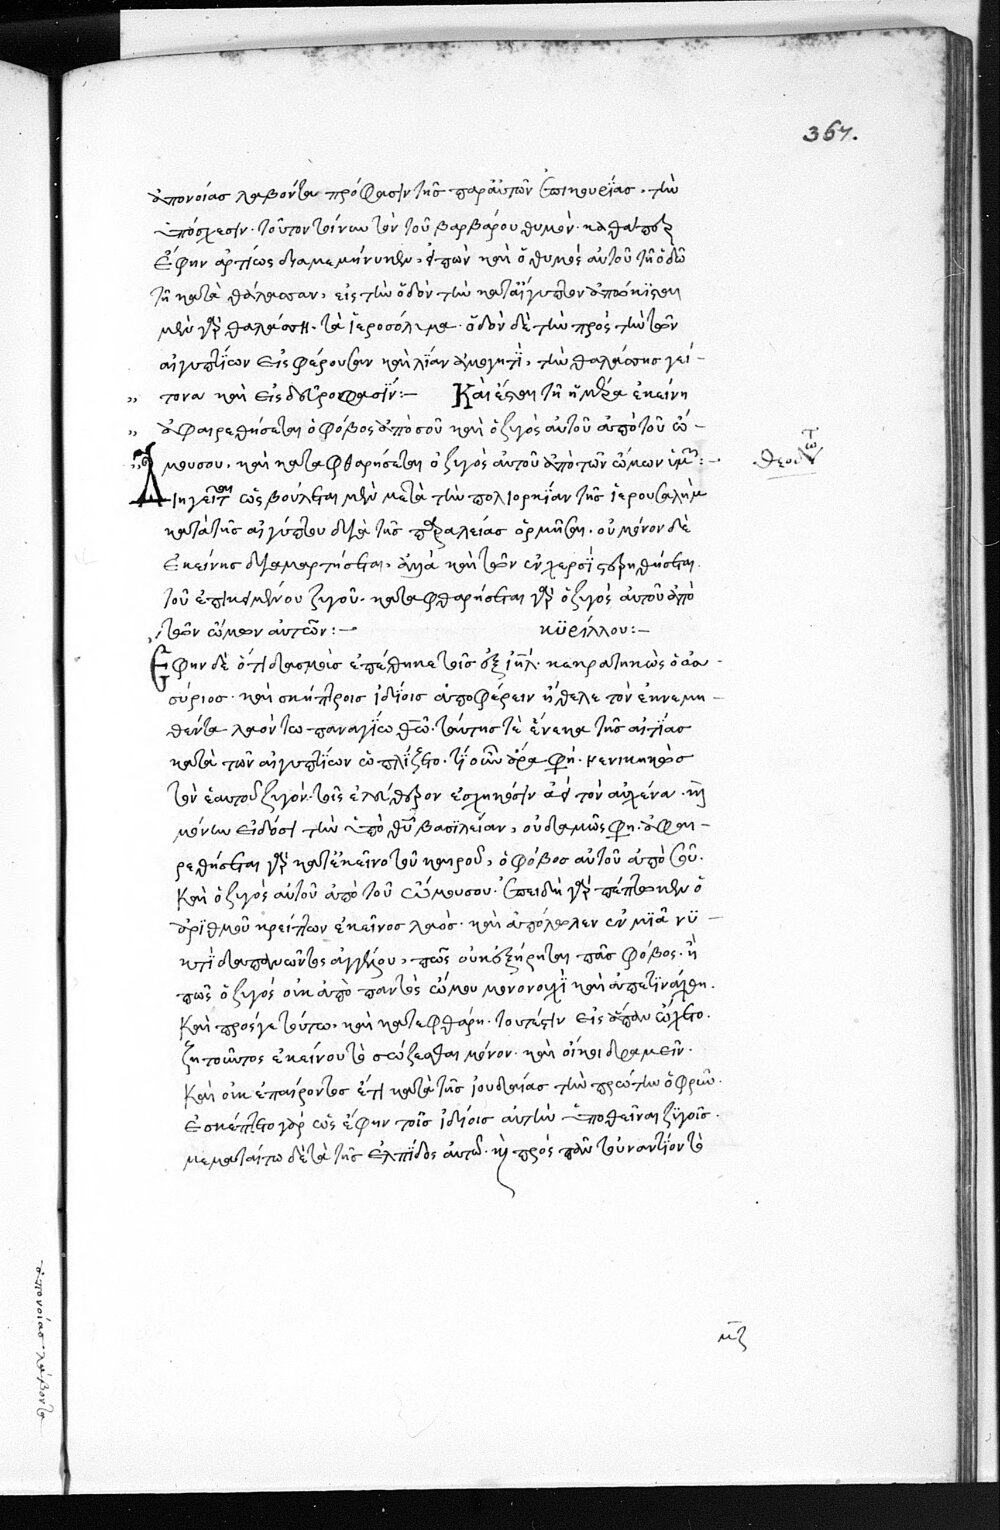 367.
ἀπονοίας λαβόντα πρόφασιν τῆς παρ' αὐτῶν ἐπικουρίας, τὴν
ὑπόσχεσιν. τοῦτον τοίνυν τὸν τοῦ βαρβάρου θυμὸν. καθάπερ
ἔφην ἀρτίως διαμεμήνυκεν, εἰπὼν καὶ ὁ θυμὸς αὐτοῦ τῇ ὁδῷ
τῇ κατὰ θάλασσαν, εἰς τὴν ὁδὸν τὴν κατ' αἴγυπτον
μὲν γὰρ θαλάσσῃ. τὰ ἱεροσόλυμα. ὁδὸν δὲ τὴν πρὸς τὴν τῶν
αἰγυπτίων εἰσφέρουσαν καὶ λίαν ἀμογητὶ, τὴν θαλάσσης γεί-
τονα καὶ :- Καὶ ἔσται τῇ ἡμέρᾳ ἐκείνῃ
ἀφαιρεθήσεται ὁ φόβος ἀπὸ σοῦ καὶ ὁ ζυγὸς αὐτοῦ ἀπὸ τοῦ ὤ-
μου σου, καὶ καταφθαρήσεται ὁ ζυγὸς αὐτοῦ ἀπὸ τῶν ὤμων ὑμῶν:-
θεοδώτου
Διηγεῖται ὡς βούλεται μὲν μετὰ τὴν πολιορκίαν τῆς ἱερουσαλὴμ
κατὰ τῆς αἰγύπτου διὰ τῆς παραλίας ὁρμῆσαι. οὐ μόνον δὲ
ἐκείνης διαμαρτήσεται, ἀλλὰ καὶ τῶν ἐν χερσὶ στερηθήσεται.
τοῦ ἐπικειμένου ζυγοῦ. καταφθαρήσεται γὰρ ὁ ζυγὸς αὐτοῦ ἀπὸ
τῶν ὤμων αὐτῶν:- κϋρίλλου:-
Ἔφην δὲ ὅτι δασμοὺς ἐπέθηκε τοῖς ἐξ ιηλ. κεκρατηκὼς ὁ ἀσ-
σύριος. καὶ σκήπτροις ἰδίοις ἀποφέρειν ἤθελε τὸν ἐκνεμη-
θέντα λαὸν τῷ παναγίῳ θῶ. ταύτης τὲ ἕνεκα τῆς αἰτίας
κατὰ τῶν αἰγυπτίων ὡπλίζετο. τί οὖν ἄρα φη. κενικηκὼς
τὸν ἑαυτοῦ ζυγὸν. τοῖς ἐλεύθερον ἐσχηκόσιν ἀεὶ τὸν αὐχένα. καὶ
μόνην εἰδόσι τὴν ὑπὸ θῦ βασιλείαν, οὐδαμῶς φη. ἀφαι-
ρεθήσεται γὰρ κατ' ἐκεῖνο τοῦ καιροῦ, ὁ φόβος αὐτοῦ ἀπὸ σοῦ.
Καὶ ὁ ζυγὸς αὐτοῦ ἀπὸ τοῦ ὤμου σου. ἐπειδὴ γὰρ πέπτωκεν ὁ
ἀριθμοῦ κρείττων ἐκεῖνος λαὸς. καὶ ἀπόλωλεν ἐν μιᾷ νυ-
κτὶ δαπανῶντος ἀγγέλου, πῶς οὐκ ἐξῄρηται πᾶς φόβος. ἢ
πῶς ὁ ζυγὸς οὐκ ἀπὸ παντὸς ὤμου μονονουχὶ καὶ ἀπετινάχθη.
Καὶ πρός γε τούτῳ, καὶ κατεφθάρη. τουτέστιν εἰς ἅπαν ᾤχετο.
ζητοῦντος ἐκείνου τὸ σώζεσθαι μόνον. καὶ οἴκοι δραμεῖν.
Καὶ οὐκ ἐπαίροντος ἔτι κατὰ τῆς ἰουδαίας τὴν πρώτην ὀφρῦν.
ἐσκέπτετο γὰρ ὡς ἔφην τοῖς ἰδίοις αὐτὴν ὑποθεῖναι ζυγοῖς.
μεματαίωτο δὲ τὰ τῆς ἐλπίδος αὐτῶ. καὶ πρὸς πᾶν τοὐναντίον τὸ
μζ
ἀπονοίας λαβόντα